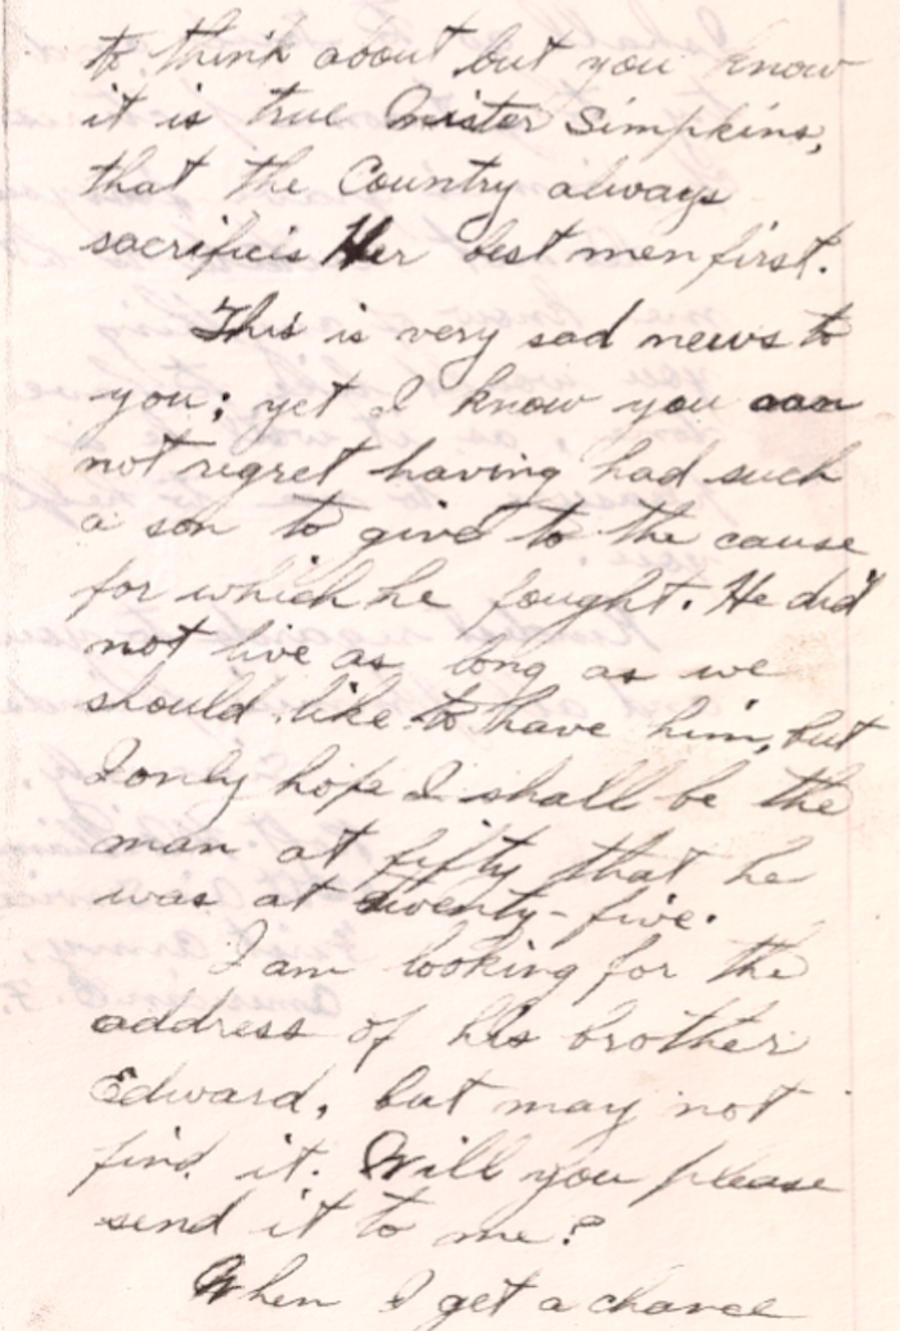 to think about but you know
it is true Mister Simpkins,
that the Country always
sacrificis Her best men first.
This is very sad news to
you; yet I know you can
not regret having had such
a son to give to the cause
for which he fought. He did
not live as long as we
should like to have him, but
I only hope I shall be the
man at fifty that he
was at twenty-five.
I am looking for the
address of his brother
Edward, but may not
find it. Will you please
send it to me?
When I get a chance